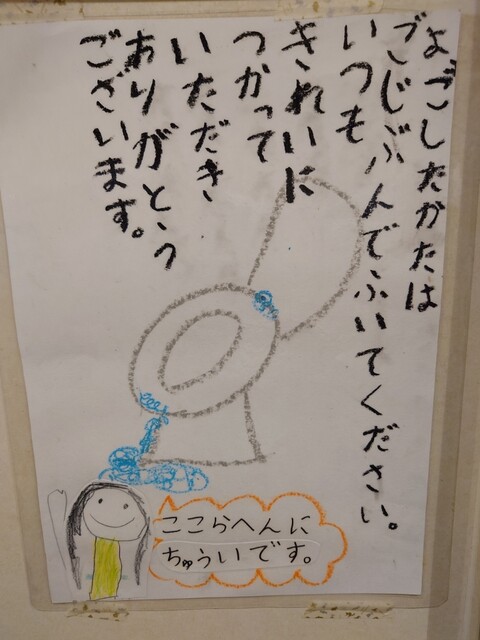 よごしたかたは
ごじぶんでふいてください。
いつも
きれいに
つかって
いただき
ありがとう
ございます。
ここらへんに
ちゅういです。